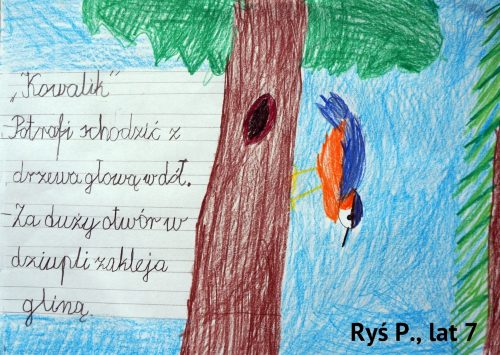 „Kowalik”
Potrafi schodzić z
drzewa głową w dół.
-Za duży otwór w
dziupli zakleja
gliną.
Ryś P., lat 7